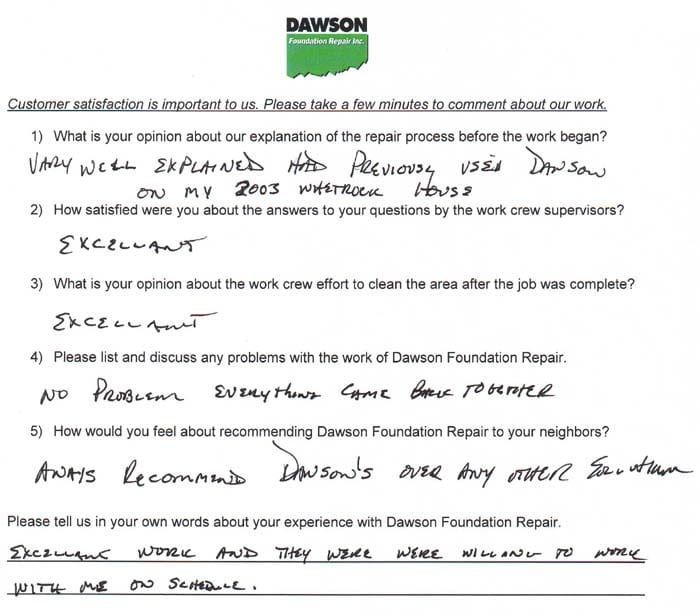 DAWSON
Foundation Repair Inc.
Customer satisfaction is important to us. Please take a few minutes to comment about our work.
1) What is your opinion about our explanation of the repair process before the work began?
VARY WELL EXPLAINED HAD PREVIOUSLY USED DAWSON
ON MY 2003 WHETROCK HOUSE
2) How satisfied were you about the answers to your questions by the work crew supervisors?
EXCELLANT
3) What is your opinion about the work crew effort to clean the area after the job was complete?
EXCELLANT
4) Please list and discuss any problems with the work of Dawson Foundation Repair.
NO PROBLEM EVERYTHING CAME BACK TOGETHER
5) How would you feel about recommending Dawson Foundation Repair to your neighbors?
AWAYS RECOMMEND DAWSON'S OVER ANY OTHER
Please tell us in your own words about your experience with Dawson Foundation Repair.
EXCELLANT WORK AND THEY WERE WERE WILLING TO WORK
WITH ME ON SCHEDULE.